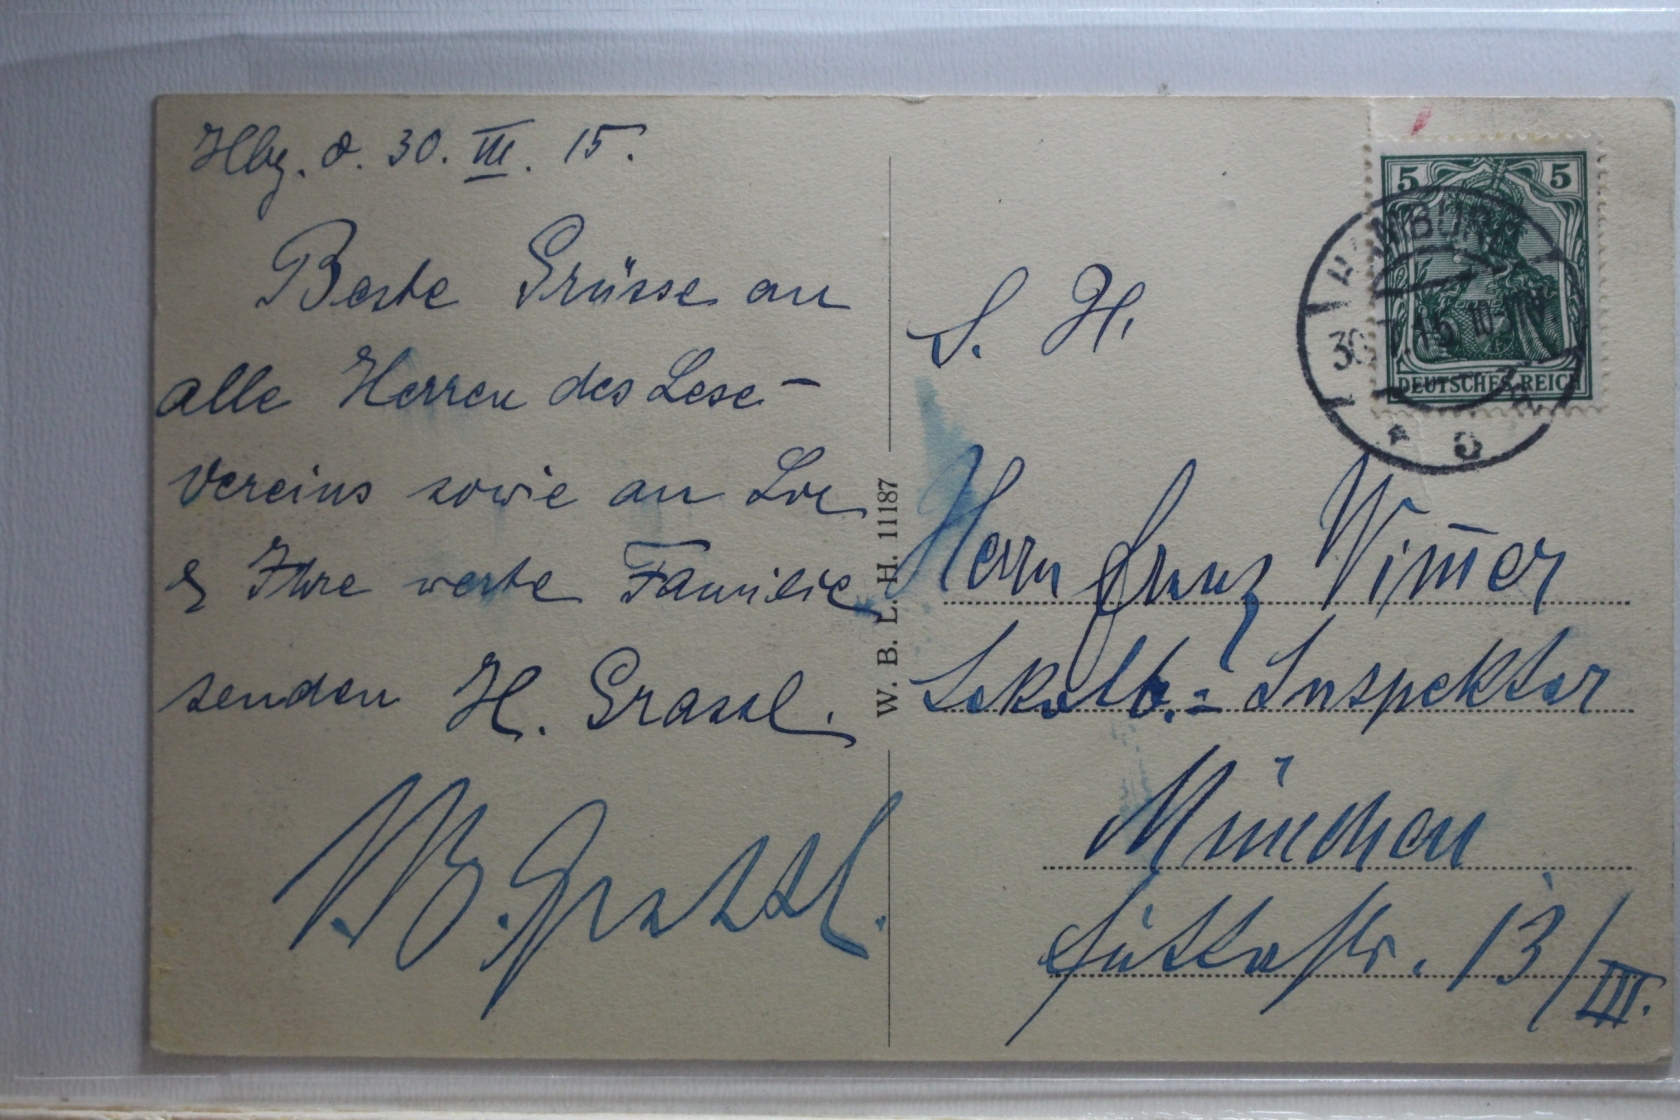 Hbg. d. 30. III. 15.
Beste Grüsse an
alle Herren des Lese-
vereins sowie an Sie
& Ihre werte Familie
senden H. Grassl.
B. Grassl.
W. B. L. H. 11187
S. H.
Herrn Franz Wimer
Lokalb.= Inspektor
München
13/III.
5 5
DEUTSCHES REICH
HAMBURG
30 15 10-
* 5